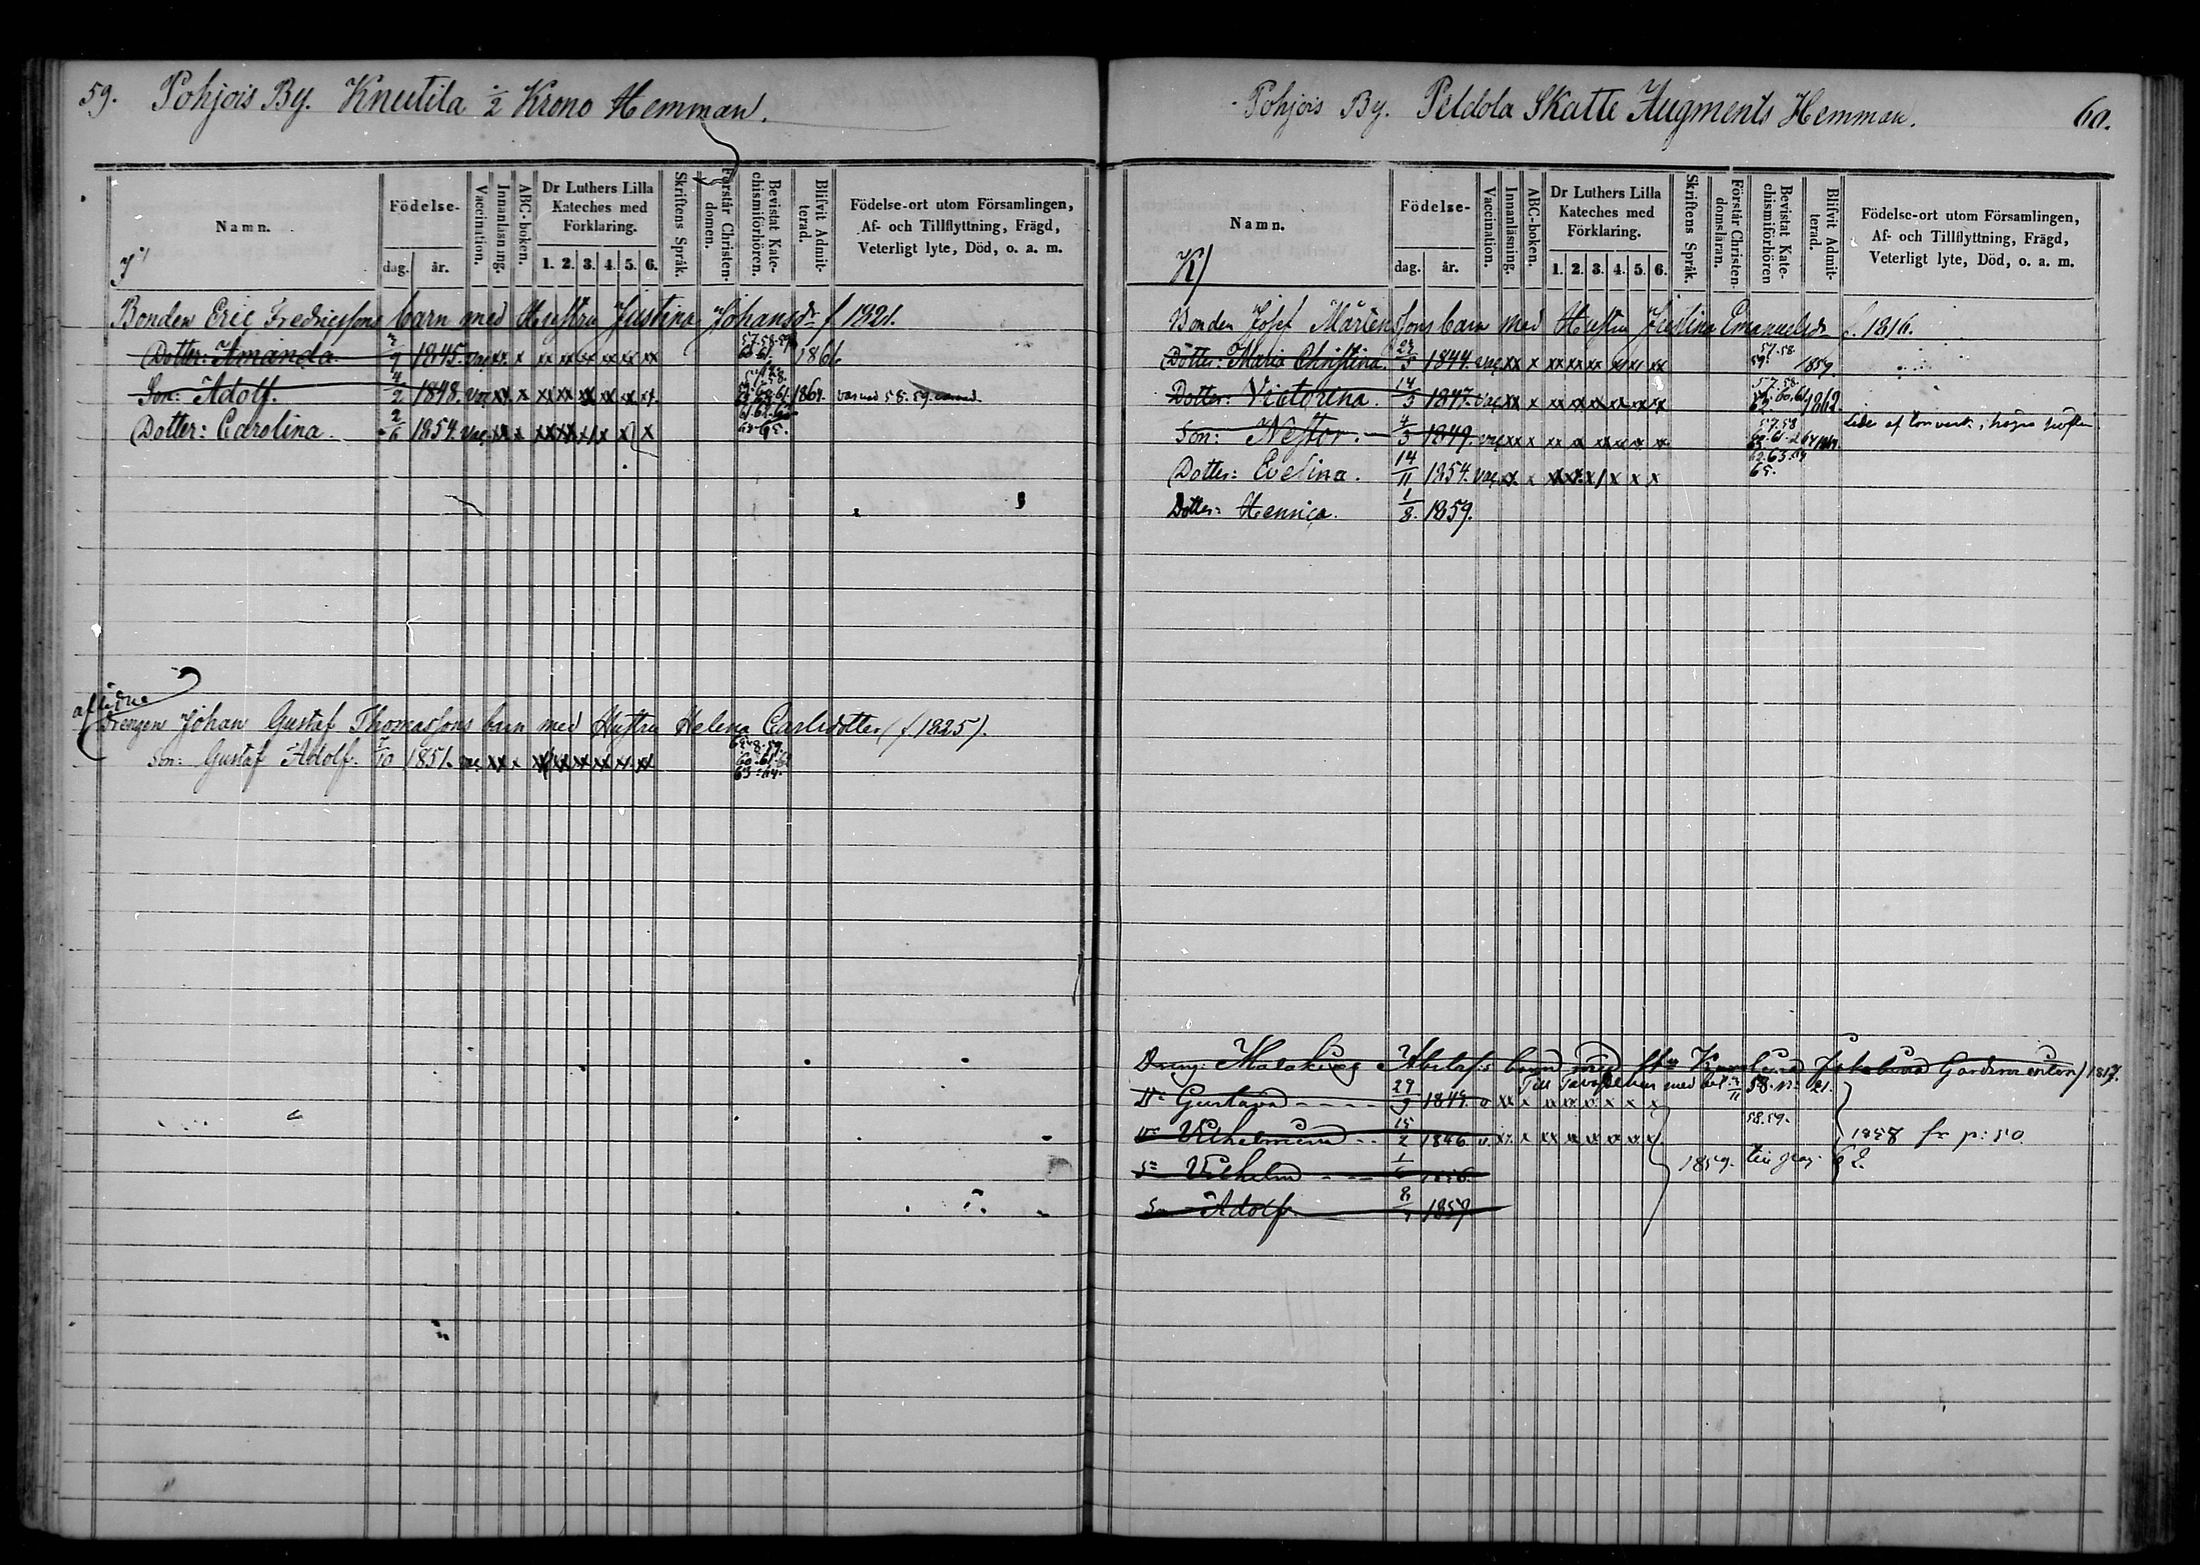 59. Pohjois By. Knutila 1/2 Krono Hemman.
Namn.
Födelse-
dag. år.
Vaccination.
Innanläsning.
ABC-boken.
Dr Luthers Lilla Kateches med Förklaring.
1. 2. 3. 4. 5. 6.
Skriftens Språk.
Förstår Christendomen.
Bevistat Katechismiförhören.
Blifvit Admitterad.
Födelse-ort utom Församlingen, Af- och Tillflyttning, Frägd, Veterligt lyte, Död, o. a. m.
Bonden Eric Fredricssons barn med Hustru Justina Johansdr f 1821.
Dotter: Amanda. 1845. vac xx x xx xx xx xx xx xx 57.58.59 60.61. 1861.
Son: Adolf. 4/2 1848. vac xx x xx xx xx xx xx xx 1864.
Dotter: Carolina. 2/6 1854. vac xx x
afledne
Drengen Johan Gustaf Thomassons barn med Hustru Helena Carlsdotter (f 1825).
Son: Gustaf Adolf. /10 1851. vac xx x 58.59. 60.61.62 63.64.
Pohjois By. Peldola Skatte Augments Hemman. 60.
Namn.
K)
Födelse-
dag. år.
Vaccination.
Innanläsning.
ABC-boken.
Dr Luthers Lilla Kateches med Förklaring.
1. 2. 3. 4. 5. 6.
Skriftens Språk.
Förstår Christendomsläran.
Bevistat Katechismiförhören
Blifvit Admitterad.
Födelse-ort utom Församlingen, Af- och Tillflyttning, Frägd, Veterligt lyte, Död, o. a. m.
Bonden Josef Mårtenssons barn med Hustru Justina Emanuelsdr f. 1816.
Dotter: Maria Christina. 1844. vac xx x xx xx xx xx xx xx 57.58. 59. 1859.
Dotter: Victorina. 14/3 1847. vac xx x 57.58. 1862.
Son: Nestor. 4/3 1849. vac xx x 57.58 1864.
Dotter: Evelina. 14/11 1854. vac xx x 62.63. 65.
Dotter: Henrica. 1/8. 1859.
Dreng: Abelsf:s barn med Karolina 1817.
Till Tavastehus med bet. 58. n: 21.
Dr Gustava 29/9 1849. v xx x
Dr Vilhelmina 15/2 1846. v. xx x 58.59. 1858 fr p: 50
Sn Vilhelm 1/6 1856. 1859. till pag. 62.
Sn Adolf 1859